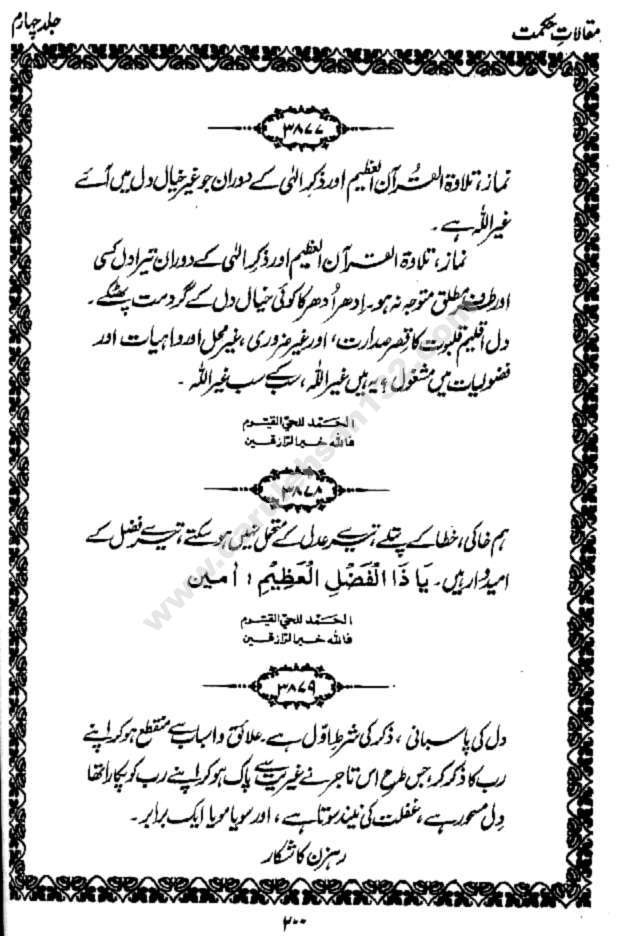 مقالاتِ حکمت
جلد چہارم
۳۸۷۷
نماز، تلاوۃ القرآن العظیم اور ذکرِ الٰہی کے دوران جو غیر خیال دل میں آئے
غیر اللہ ہے۔
نماز، تلاوۃ القرآن العظیم اور ذکرِ الٰہی کے دوران تیرا دل کسی
اور طرف مطلق متوجہ نہ ہو۔ اِدھر اُدھر کا کوئی خیال دل کے گرد مت پھٹکے۔
دل اقلیمِ قلبوت کا قصرِ صدارت، اور غیر ضروری، غیر محل اور واہیات اور
فضولیات میں مشغول؟ یہ ہیں غیر اللہ، سب کے سب غیر اللہ۔
الحمد للحی القیوم
فاللہ خیر الرازقین
۳۸۷۸
ہم خاکی، خطا کے پتلے، تیرے عدل کے متحمل نہیں ہو سکتے، تیرے فضل کے
امیدوار ہیں۔ یَا ذَا الْفَضْلِ الْعَظِیْمِ! اٰمین
الحمد للحی القیوم
فاللہ خیر الرازقین
۳۸۷۹
دل کی پاسبانی، ذکر کی شرطِ اوّل ہے۔ علائق و اسباب سے منقطع ہو کر اپنے
رب کا ذکر کر، جس طرح اس تاجر نے غیریت سے پاک ہو کر اپنے رب کو پکارا تھا
دل مسحور ہے، غفلت کی نیند سوتا ہے، اور سویا مویا ایک برابر۔
رہزن کا شکار
۲۰۰